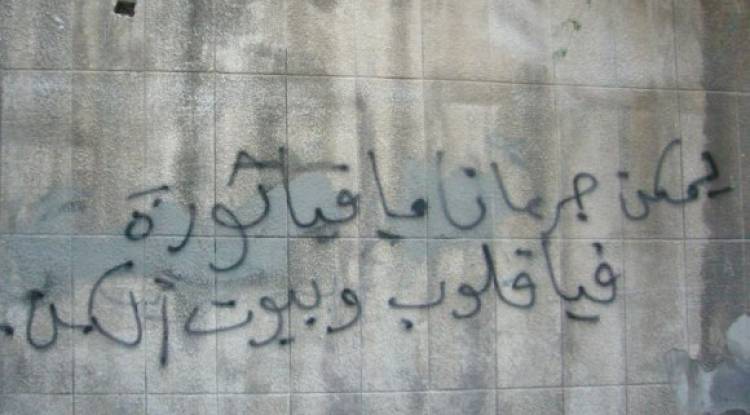 يمكن جرمانا ما فيا ثورة
فيا قلوب وبيوت ألكن.